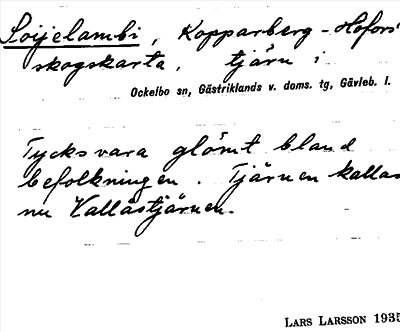 Soijelambi, Kopparberg-Hofors'
skogskarta, tjärn i
Ockelbo sn, Gästriklands v. doms. tg, Gävleb. l.
Tycks vara glömt bland
befolkningen. Tjärnen kallas
nu Vallåstjärnen.
LARS LARSSON 1935